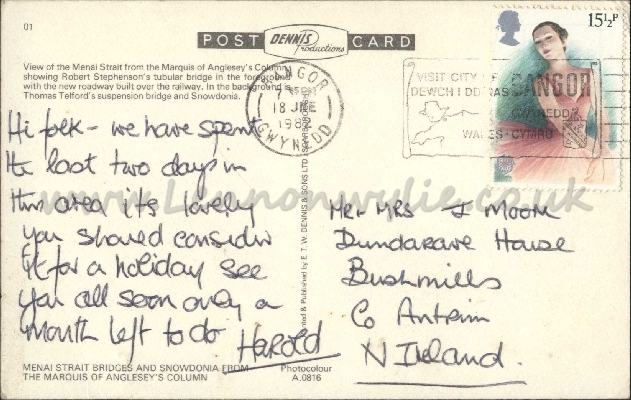 01
POST DENNIS Productions CARD
View of the Menai Strait from the Marquis of Anglesey's Column
showing Robert Stephenson's tubular bridge in the foreground
with the new roadway built over the railway. In the background is
Thomas Telford's suspension bridge and Snowdonia.
Hi folk - we have spent
the last two days in
this area its lovely
You should consider
it for a holiday see
you all soon only a
month left to do
Harold
MENAI STRAIT BRIDGES AND SNOWDONIA FROM
THE MARQUIS OF ANGLESEY'S COLUMN
Photocolour
A.0816
Printed & Published by E. T. W. DENNIS & SONS LTD SCARBOROUGH
BANGOR
18 JNE
1982
GWYNEDD
VISIT CITY OF BANGOR
DEWCH I DDINAS
GWYNEDD
WALES-CYMRU
15½P
Mr. MRS J Moore
Dundarave House
Bushmills
Co Antrim
N Ireland.
www.Lennonwylie.co.uk